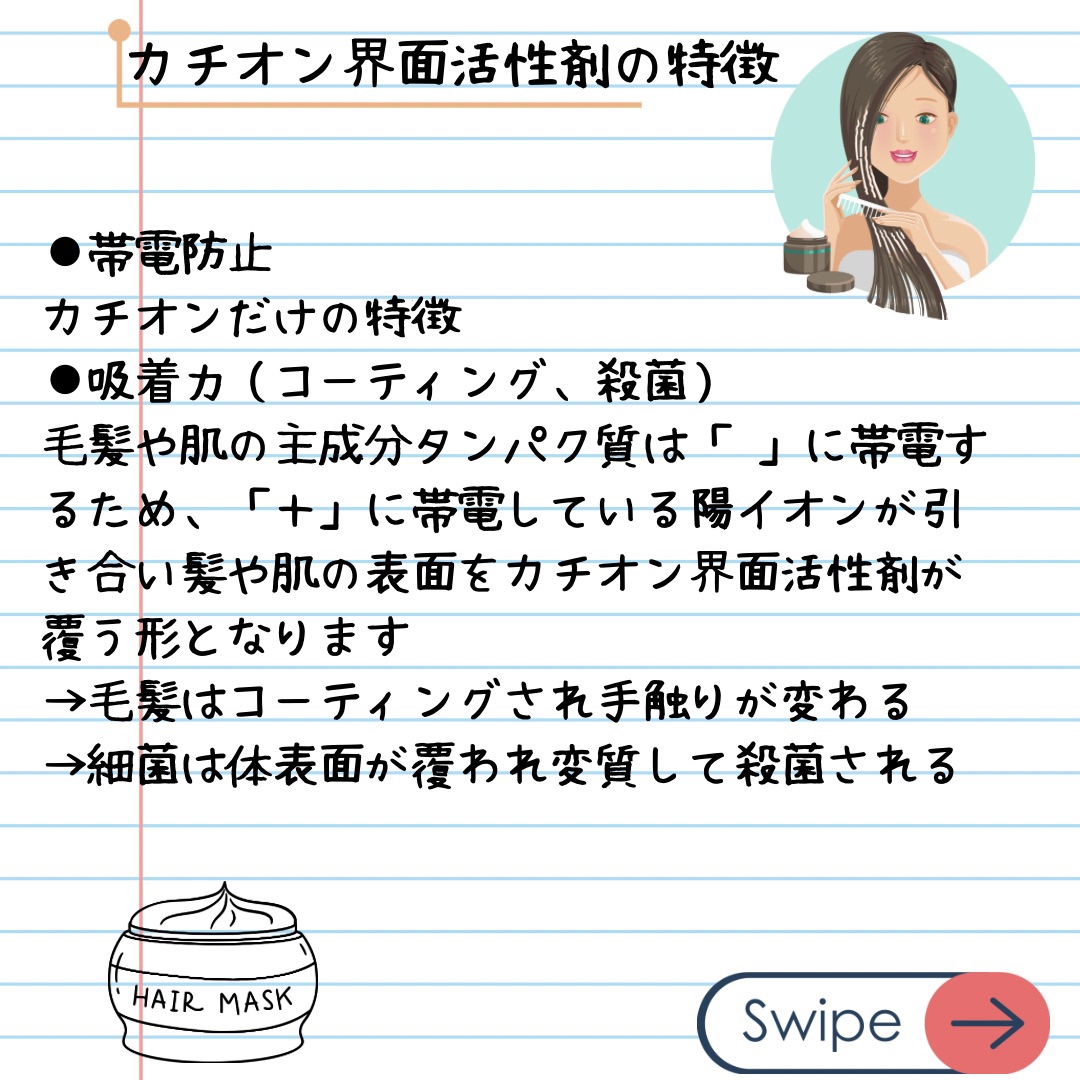 カチオン界面活性剤の特徴
●帯電防止
カチオンだけの特徴
●吸着力（コーティング、殺菌）
毛髪や肌の主成分タンパク質は「　」に帯電す
るため、「＋」に帯電している陽イオンが引
き合い髪や肌の表面をカチオン界面活性剤が
覆う形となります
→毛髪はコーティングされ手触りが変わる
→細菌は体表面が覆われ変質して殺菌される
HAIR MASK
Swipe